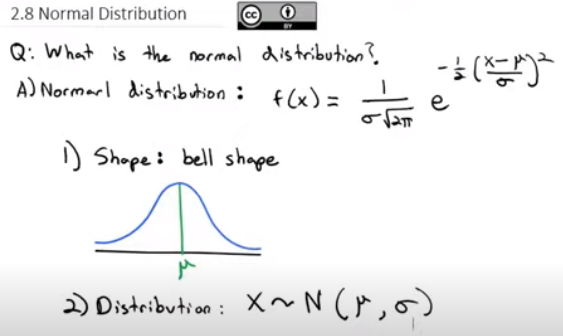 2.8 Normal Distribution
cc BY
Q: What is the normal distribution?
A) Normarl distribution : f(x) = 1/(σ√2π) e^(-½((x-μ)/σ)²)
1) Shape: bell shape
μ
2) Distribution: X ~ N (μ, σ)